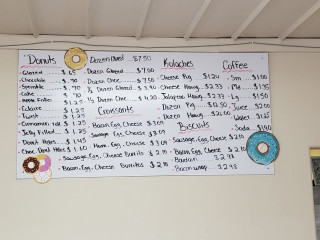 Donuts
Glazed $ .65
Chocolate $ .70
Sprinkle $ .70
Cake $ .70
Filled $ 1.25
Eclaire $ 1.25
Twist $ 1.25
Cinnamon roll $ 1.25
Jelly Filled $ 1.25
Donut Holes
Choc. Donut Holes
Dozen Mixed $7.50
Dozen Glazed $7.00
Dozen Choc $7.50
1/2 Dozen Glazed $3.90
1/2 Dozen Choc $4.20
Croissants
Bacon, Egg, Cheese $3.09
Sausage, Egg, Cheese $3.09
Ham, Egg, Cheese $3.09
Sausage, Egg, Cheese Burrito $2.70
Bacon, Egg, Cheese Burrito $2.70
Kolaches
Cheese Pig
Cheese Hawg $2.33
Jalapeno Hawg $2.33
Dozen Pig $12.50
Dozen Hawg
Biscuits
Sausage, Egg, Cheese
Bacon, Egg, Cheese
Boudain $2.98
Coffee
Sm
Md
Lg
Juice
Water $1.25
Soda